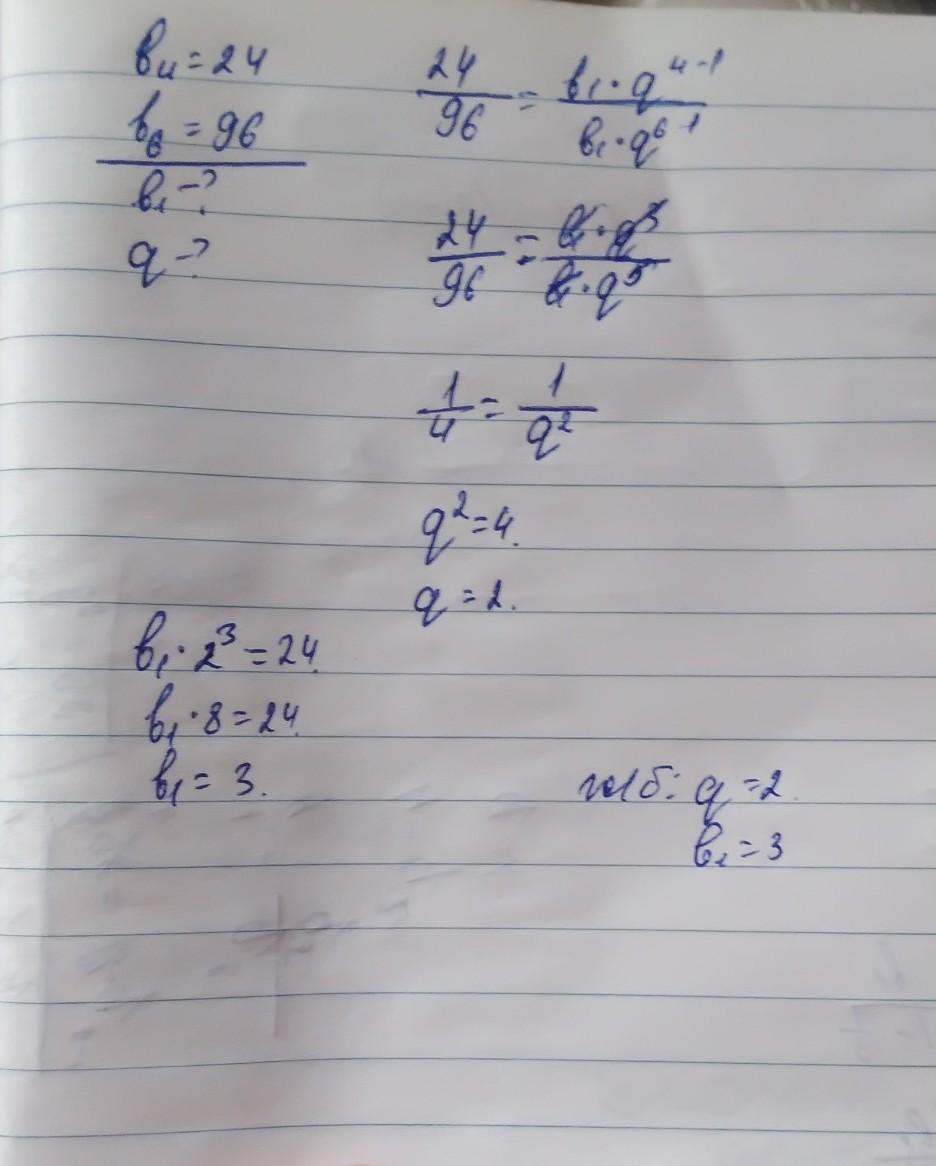 b₄ = 24
b₆ = 96
b₁ - ?
q - ?
24/96 = b₁·q⁴⁻¹/b₁·q⁶⁻¹
24/96 = b₁·q³/b₁·q⁵
1/4 = 1/q²
q² = 4.
q = 2.
b₁·2³ = 24.
b₁·8 = 24.
b₁ = 3.
q = 2.
b₁ = 3